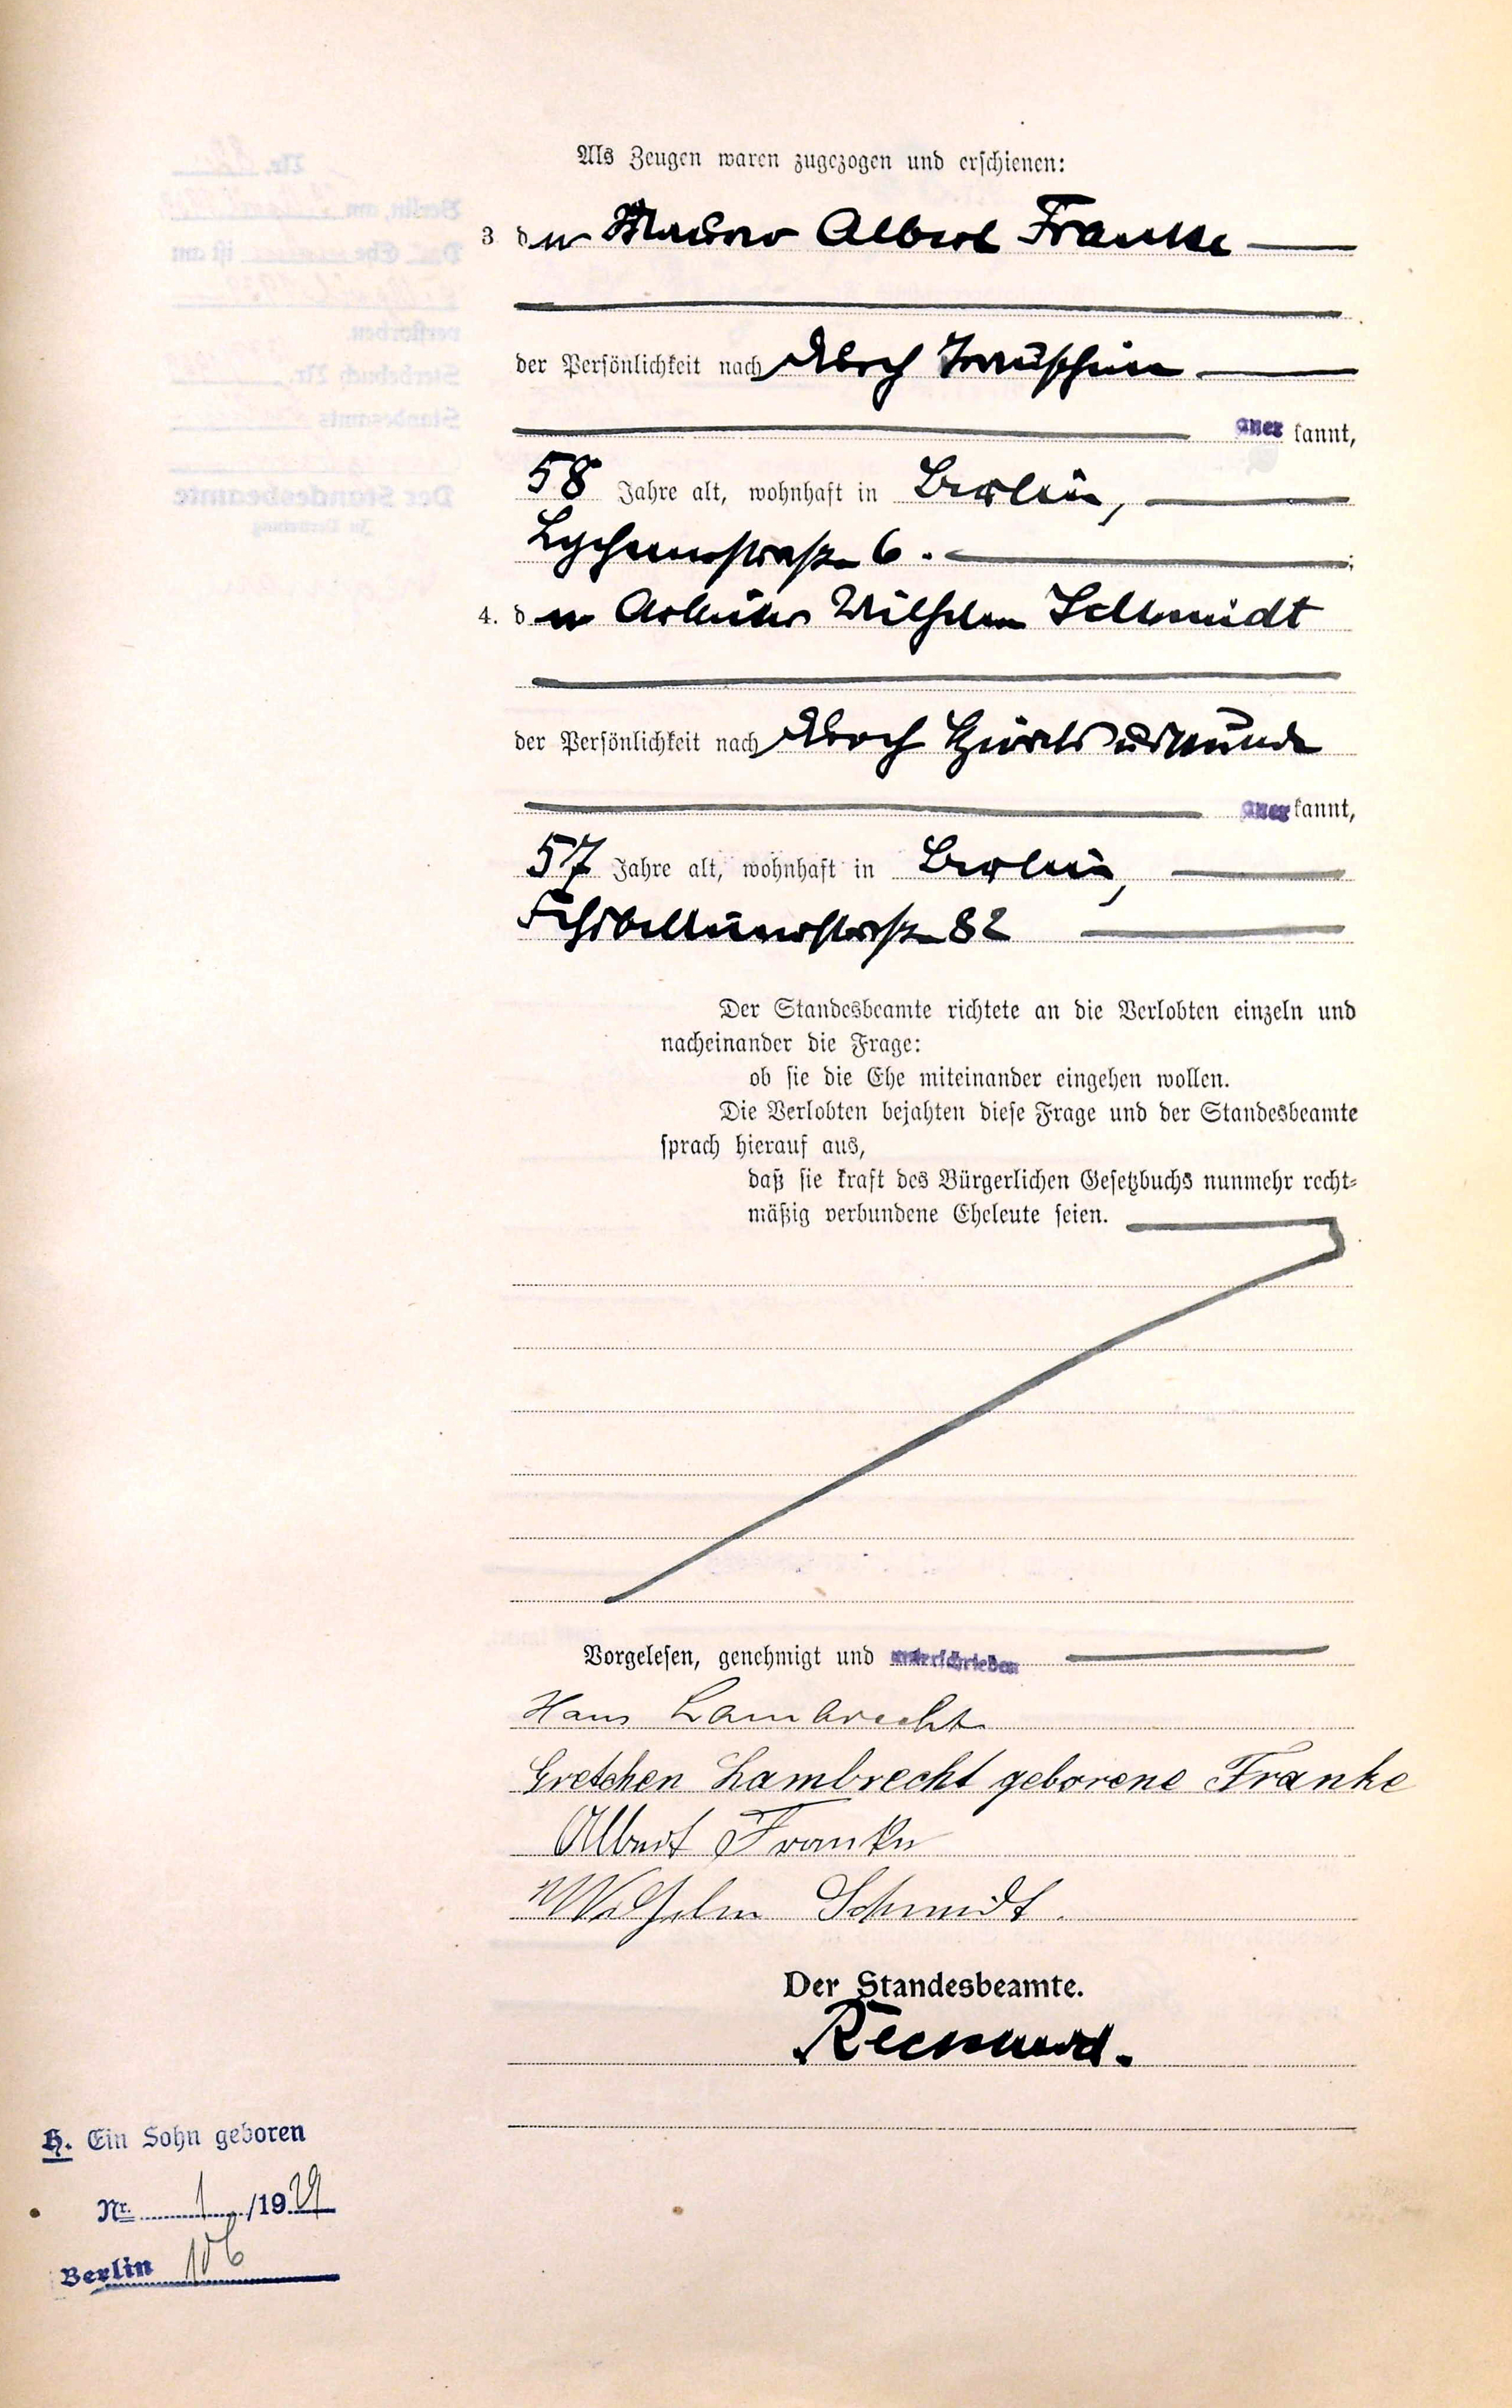 Als Zeugen waren zugezogen und erschienen:
3 der Maurer Albert Franke
der Persönlichkeit nach durch
anerkannt,
58 Jahre alt, wohnhaft in Berlin,
Lychenerstraße 6.
4. der Arbeiter Wilhelm Schmidt
der Persönlichkeit nach durch
anerkannt,
57 Jahre alt, wohnhaft in Berlin,
82
Der Standesbeamte richtete an die Verlobten einzeln und
nacheinander die Frage:
ob sie die Ehe miteinander eingehen wollen.
Die Verlobten bejahten diese Frage und der Standesbeamte
sprach hierauf aus,
daß sie kraft des Bürgerlichen Gesetzbuchs nunmehr recht-
mäßig verbundene Eheleute seien.
Vorgelesen, genehmigt und unterschrieben
Hans Lambrecht
Gretchen Lambrecht geborene Franke
Albert Franke
Wilhelm Schmidt.
Der Standesbeamte.
H. Ein Sohn geboren
Nr. 1 /1929
Berlin 106